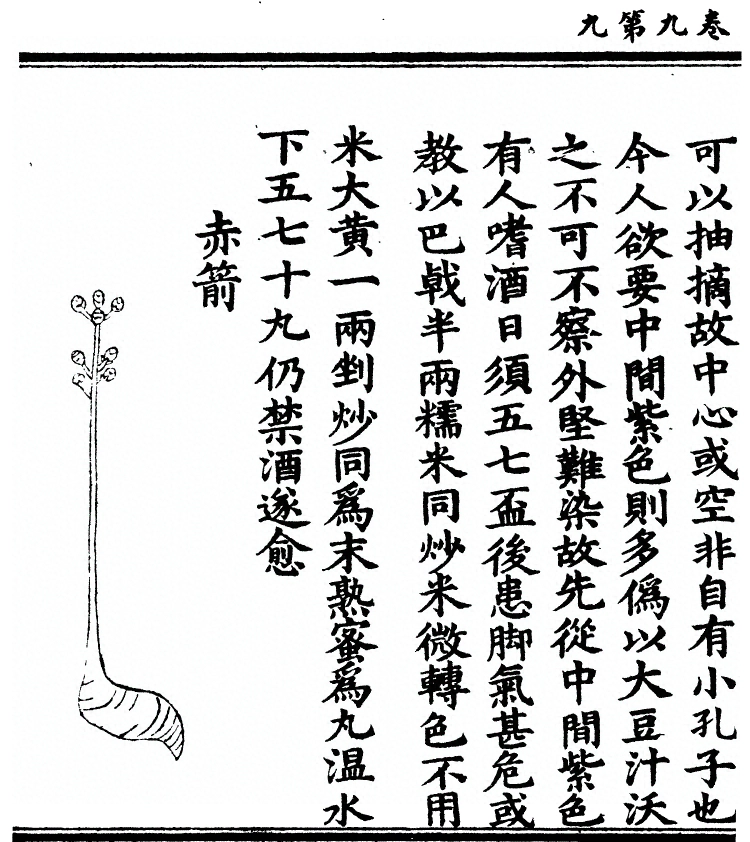 卷九第九
可以抽摘故中心或空非自有小孔子也
今人欲要中間紫色則多僞以大豆汁沃
之不可不察外堅難染故先從中間紫色
有人嗜酒日須五七盃後患脚氣甚危或
教以巴戟半兩糯米同炒米微轉色不用
米大黄一兩剉炒同爲末熟蜜爲丸温水
下五七十丸仍禁酒遂愈
赤箭